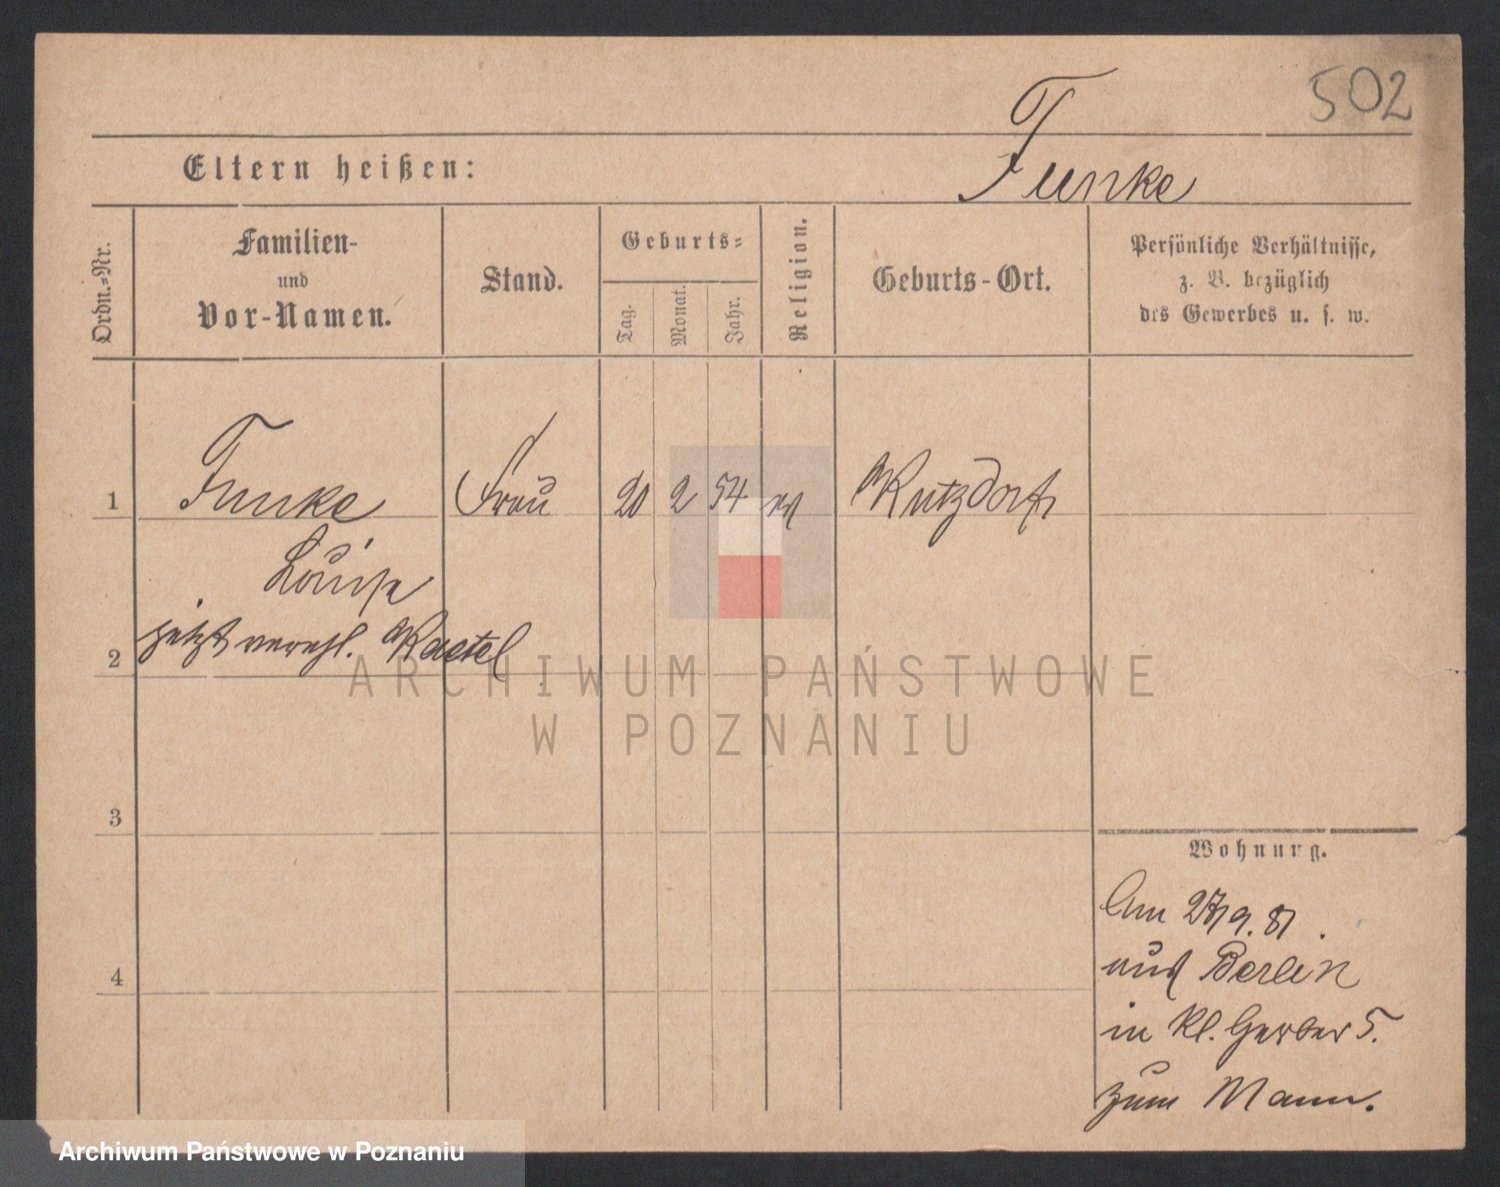 502
Funke
Eltern heißen:
Ordn.-Nr.
Familien-
und
Vor-Namen.
Stand.
Geburts-
Tag.
Monat.
Jahr.
Religion.
Geburts-Ort.
Persönliche Verhältnisse,
z. B. bezüglich
des Gewerbes u. s. w.
1
Funke
Frau
20
2
54
Kutzdorf
Louise
2
jetzt verehl.
3
4
Wohnung.
Am 27/9. 81.
aus Berlin
in kl. Gerber 5.
zum Mann.
ARCHIWUM PAŃSTWOWE
W POZNANIU
Archiwum Państwowe w Poznaniu